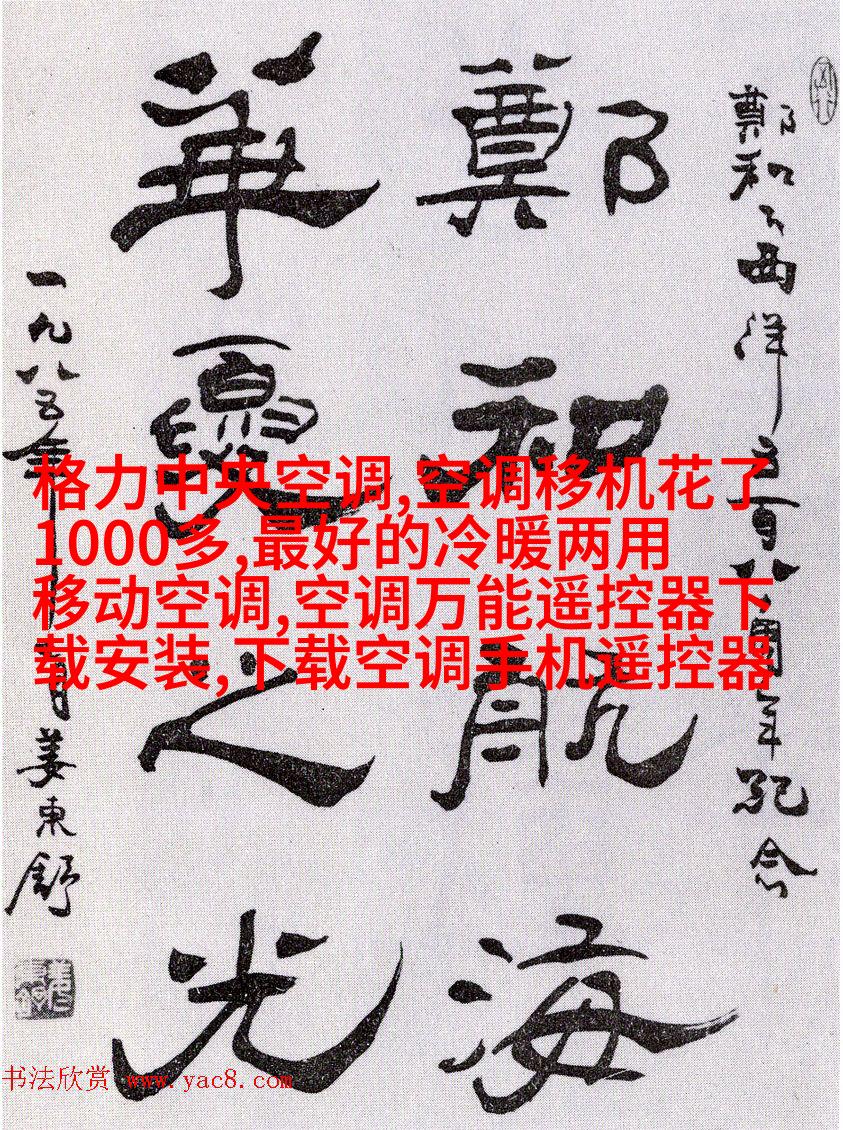 鄭和下西洋五百八十周年紀念
鄭和航海
華夏之光
一九八五年 月姜東舒
格力中央空调,空调移机花了
1000多,最好的冷暖两用
移动空调,空调万能遥控器下
载安装,下载空调手机遥控器
书法欣赏 www.yac8.com